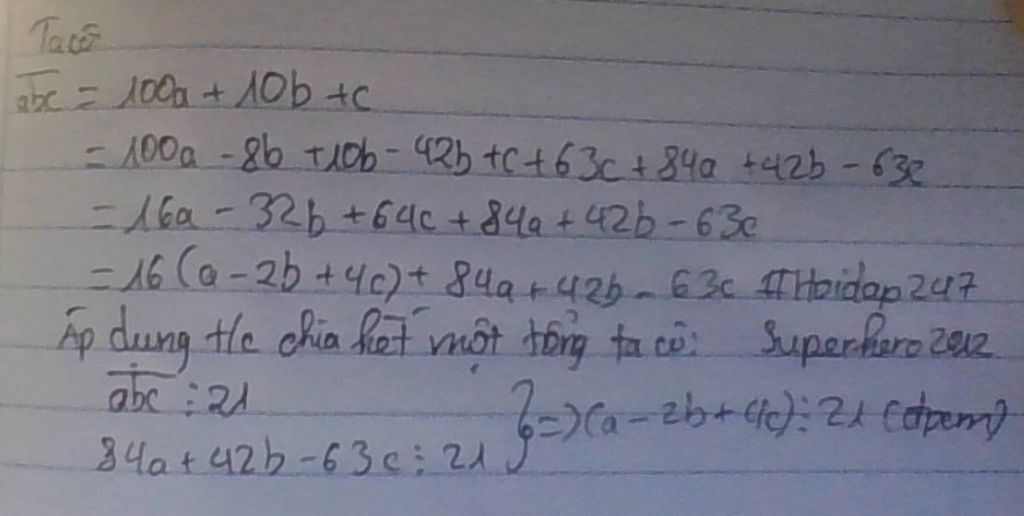 Ta có
abc = 100a + 10b + c
= 100a - 8b + 10b - 42b + c + 63c + 84a + 42b - 63c
= 16a - 32b + 64c + 84a + 42b - 63c
= 16 (a - 2b + 4c) + 84a + 42b - 63c #Hoidap247
Áp dụng t/c chia hết một tổng ta có: Superhero2012
abc ⋮ 21
} => (a - 2b + 4c) ⋮ 21 (đpcm)
84a + 42b - 63c ⋮ 21